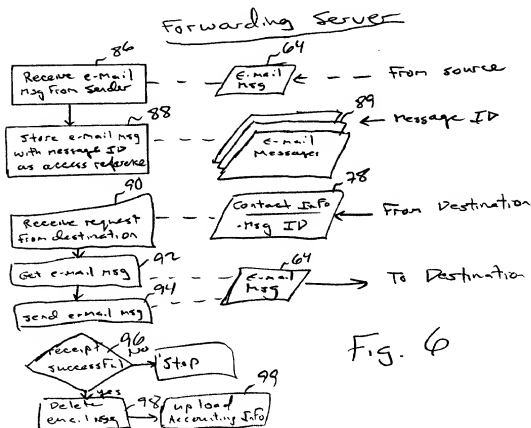 Forwarding Server
86
Receive e-mail
msg from sender
64
E-mail
msg
From source
88
Store e-mail msg
with message ID
as access reference
89
Message ID
e-mail
Messages
90
Receive request
from destination
78
Contact Info
-Msg ID
From Destination
92
Get e-mail msg
64
E-mail
Msg
To Destination
94
Send e-mail msg
96
receipt
successful
No
Stop
Fig. 6
yes
98
Delete
email Msg
99
upload
Accounting Info